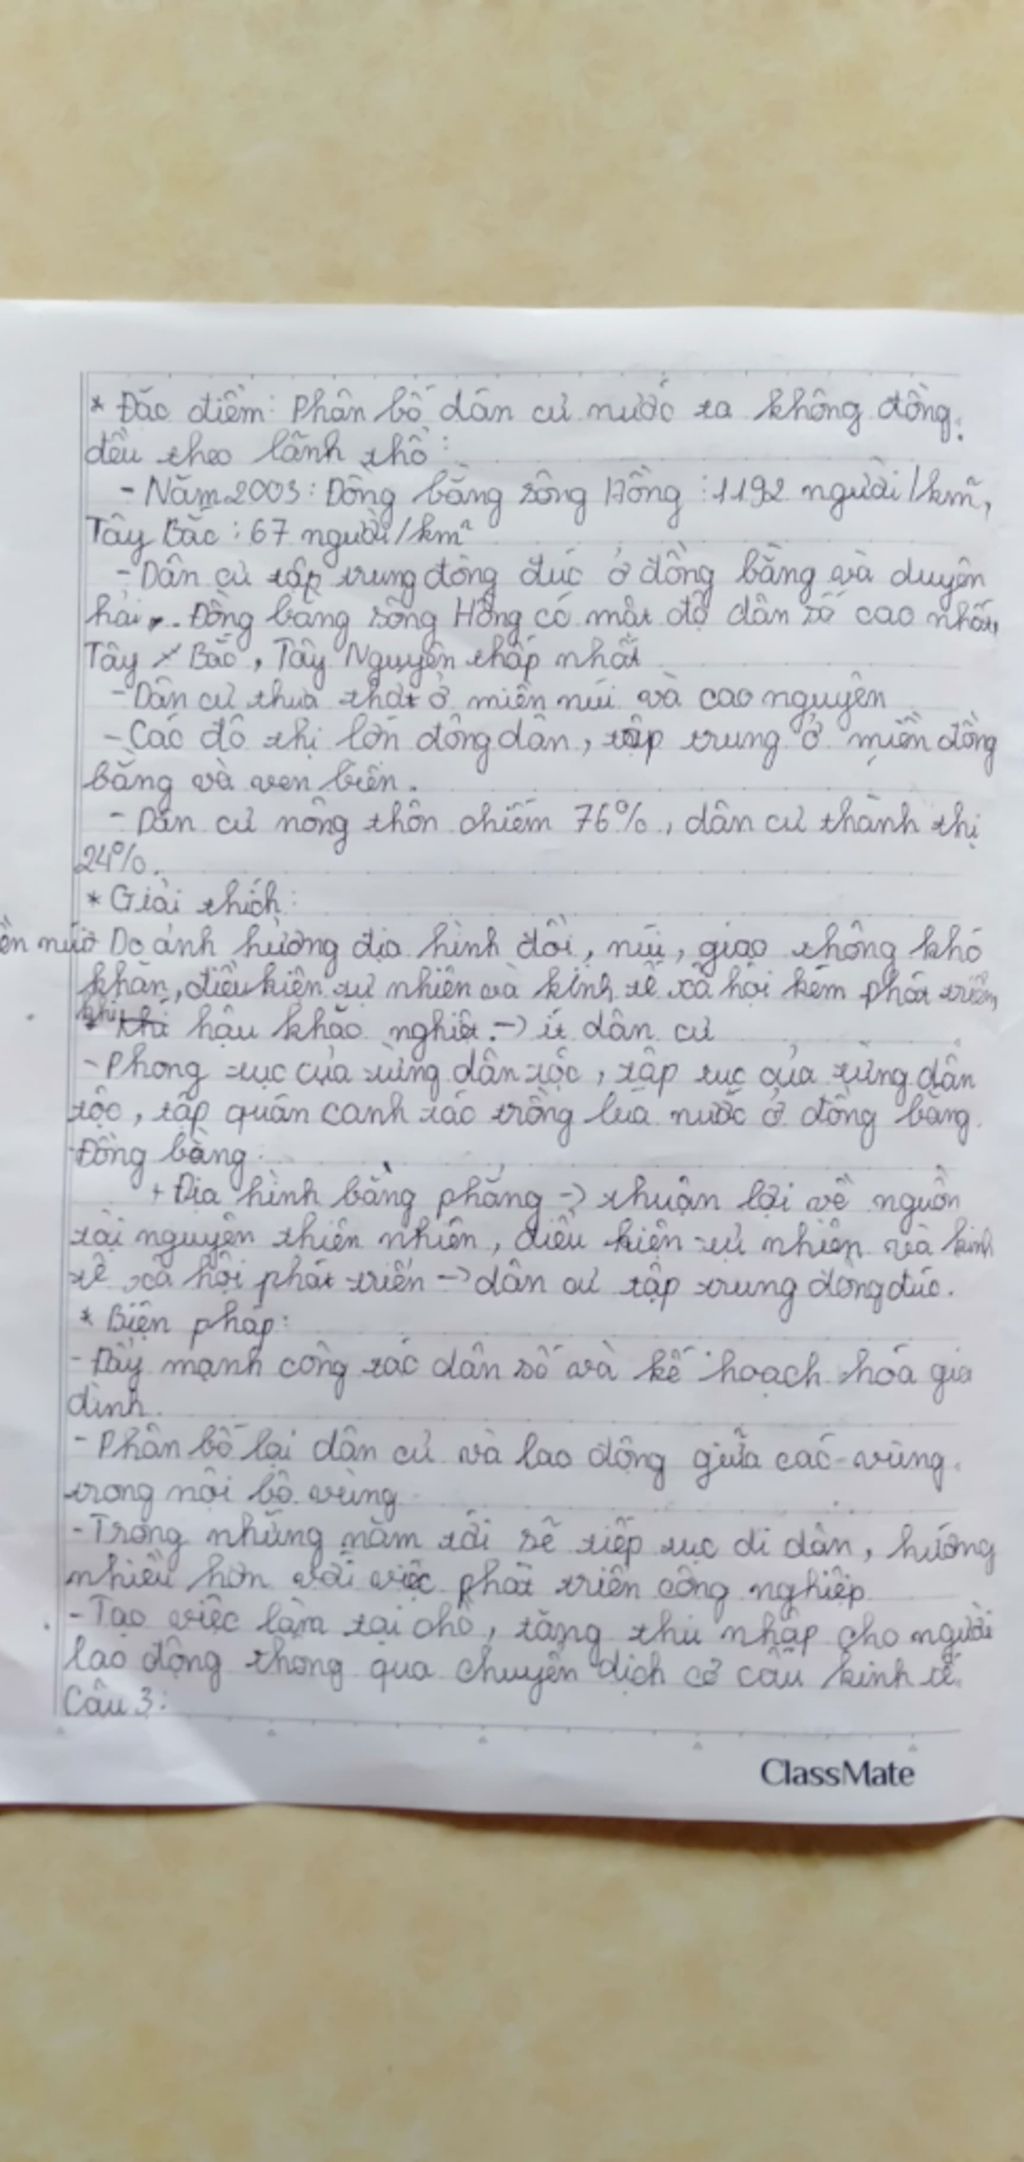 * Đặc điểm: Phân bố dân cư nước ta không đồng
đều theo lãnh thổ:
- Năm 2003: Đồng bằng sông Hồng: 1192 người/km²,
Tây Bắc: 67 người/km²
- Dân cư tập trung đông đúc ở đồng bằng và duyên
hải. Đồng bằng sông Hồng có mật độ dân số cao nhất,
Tây Bắc, Tây Nguyên thấp nhất
- Dân cư thưa thớt ở miền núi và cao nguyên
- Các đô thị lớn đông dân, tập trung ở miền đồng
bằng và ven biển.
- Dân cư nông thôn chiếm 76%, dân cư thành thị
24%.
* Giải thích:
núi Do ảnh hưởng địa hình đồi, núi, giao thông khó
khăn, điều kiện tự nhiên và kinh tế xã hội kém phát triển,
khí hậu khắc nghiệt -> ít dân cư
- Phong tục của từng dân tộc, tập tục của từng dân
tộc, tập quán canh tác trồng lúa nước ở đồng bằng.
- Đồng bằng:
+ Địa hình bằng phẳng -> thuận lợi về nguồn
tài nguyên thiên nhiên, điều kiện tự nhiên và kinh
tế xã hội phát triển -> dân cư tập trung đông đúc.
* Biện pháp:
- Đẩy mạnh công tác dân số và kế hoạch hóa gia
đình.
- Phân bố lại dân cư và lao động giữa các vùng,
trong nội bộ vùng
- Trong những năm tới sẽ tiếp tục di dân, hướng
nhiều hơn với việc phát triển công nghiệp
- Tạo việc làm tại chỗ, tăng thu nhập cho người
lao động thông qua chuyển dịch cơ cấu kinh tế.
Câu 3:
ClassMate